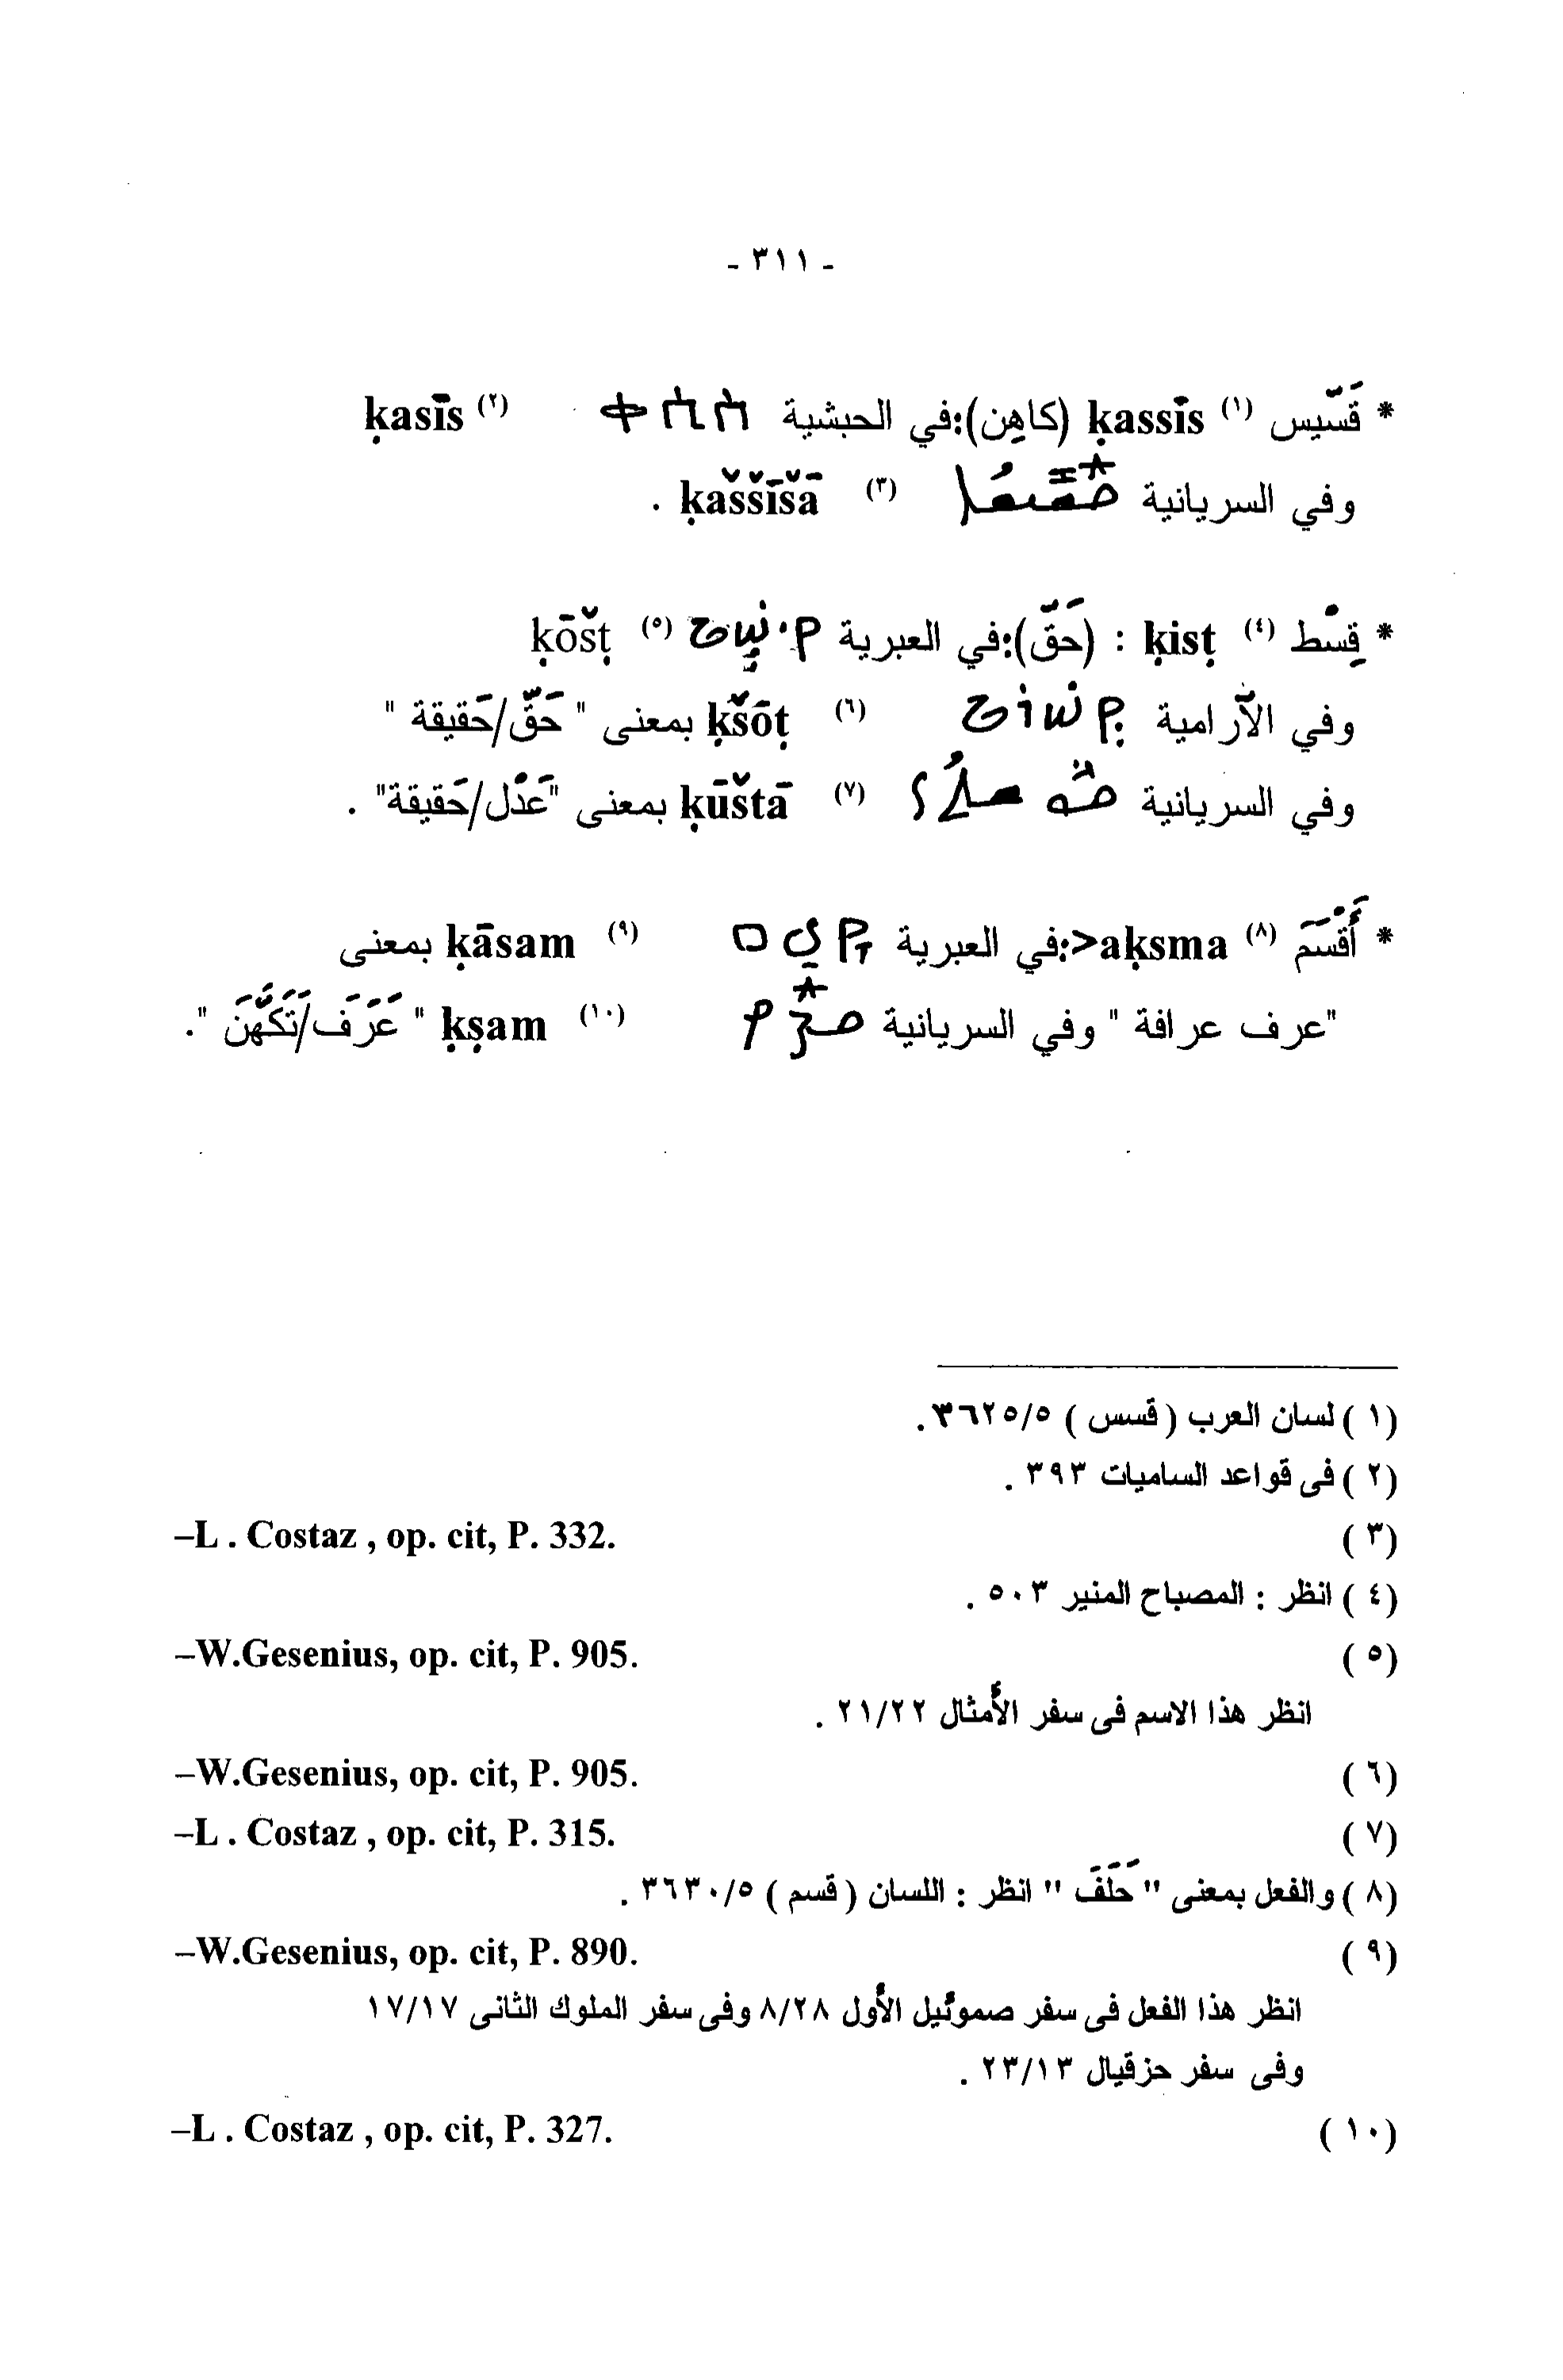 - ٣١١ -
* قَسِّيس (١) ḳassīs (كاهِن):في الحبشية ቀሲስ (٢) ḳasīs
وفي السريانية ܩܫܝܫܐ (٣) ḳaššīšā .
* قِسْط (٤) ḳisṭ : (حَقّ):في العبرية קֹשְׁטְ (٥) ḳōšṭ
وفي الآرامية קְשׁוֹט (٦) ḳšōṭ بمعنى " حَقّ/حَقيقة "
وفي السريانية ܩܘܫܬܐ (٧) ḳūštā بمعنى "عَدْل/حَقيقة" .
* أَقْسَمَ (٨) aḳsma<:في العبرية קָסַם (٩) ḳāsam بمعنى
"عرف عرافة " وفي السريانية ܩܨܡ (١٠) ḳṣam " عَرَف/تَكَهَّنَ ".
(١) لسان العرب (قسس ) ٣٦٢٥/٥.
(٢) فى قواعد الساميات ٣٩٣ .
(٣) –L . Costaz , op. cit, P. 332.
(٤) انظر : المصباح المنير ٥٠٣ .
(٥) –W.Gesenius, op. cit, P. 905.
انظر هذا الاسم فى سفر الأمثال ٢١/٢٢ .
(٦) –W.Gesenius, op. cit, P. 905.
(٧) –L . Costaz , op. cit, P. 315.
(٨) والفعل بمعنى " حَلَفَ " انظر : اللسان (قسم ) ٣٦٣٠/٥ .
(٩) –W.Gesenius, op. cit, P. 890.
انظر هذا الفعل فى سفر صموئيل الأول ٨/٢٨ وفى سفر الملوك الثانى ١٧/١٧
وفى سفر حزقيال ٢٣/١٣ .
(١٠) –L . Costaz , op. cit, P. 327.